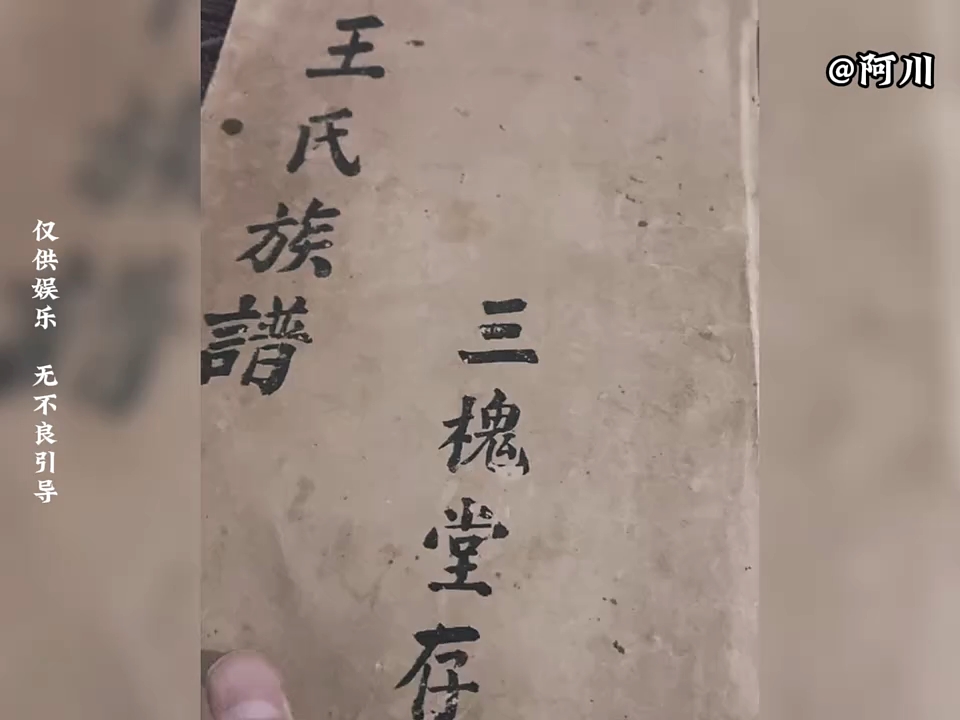 王氏族譜
三槐堂存
@阿川
仅供娱乐 无不良引导